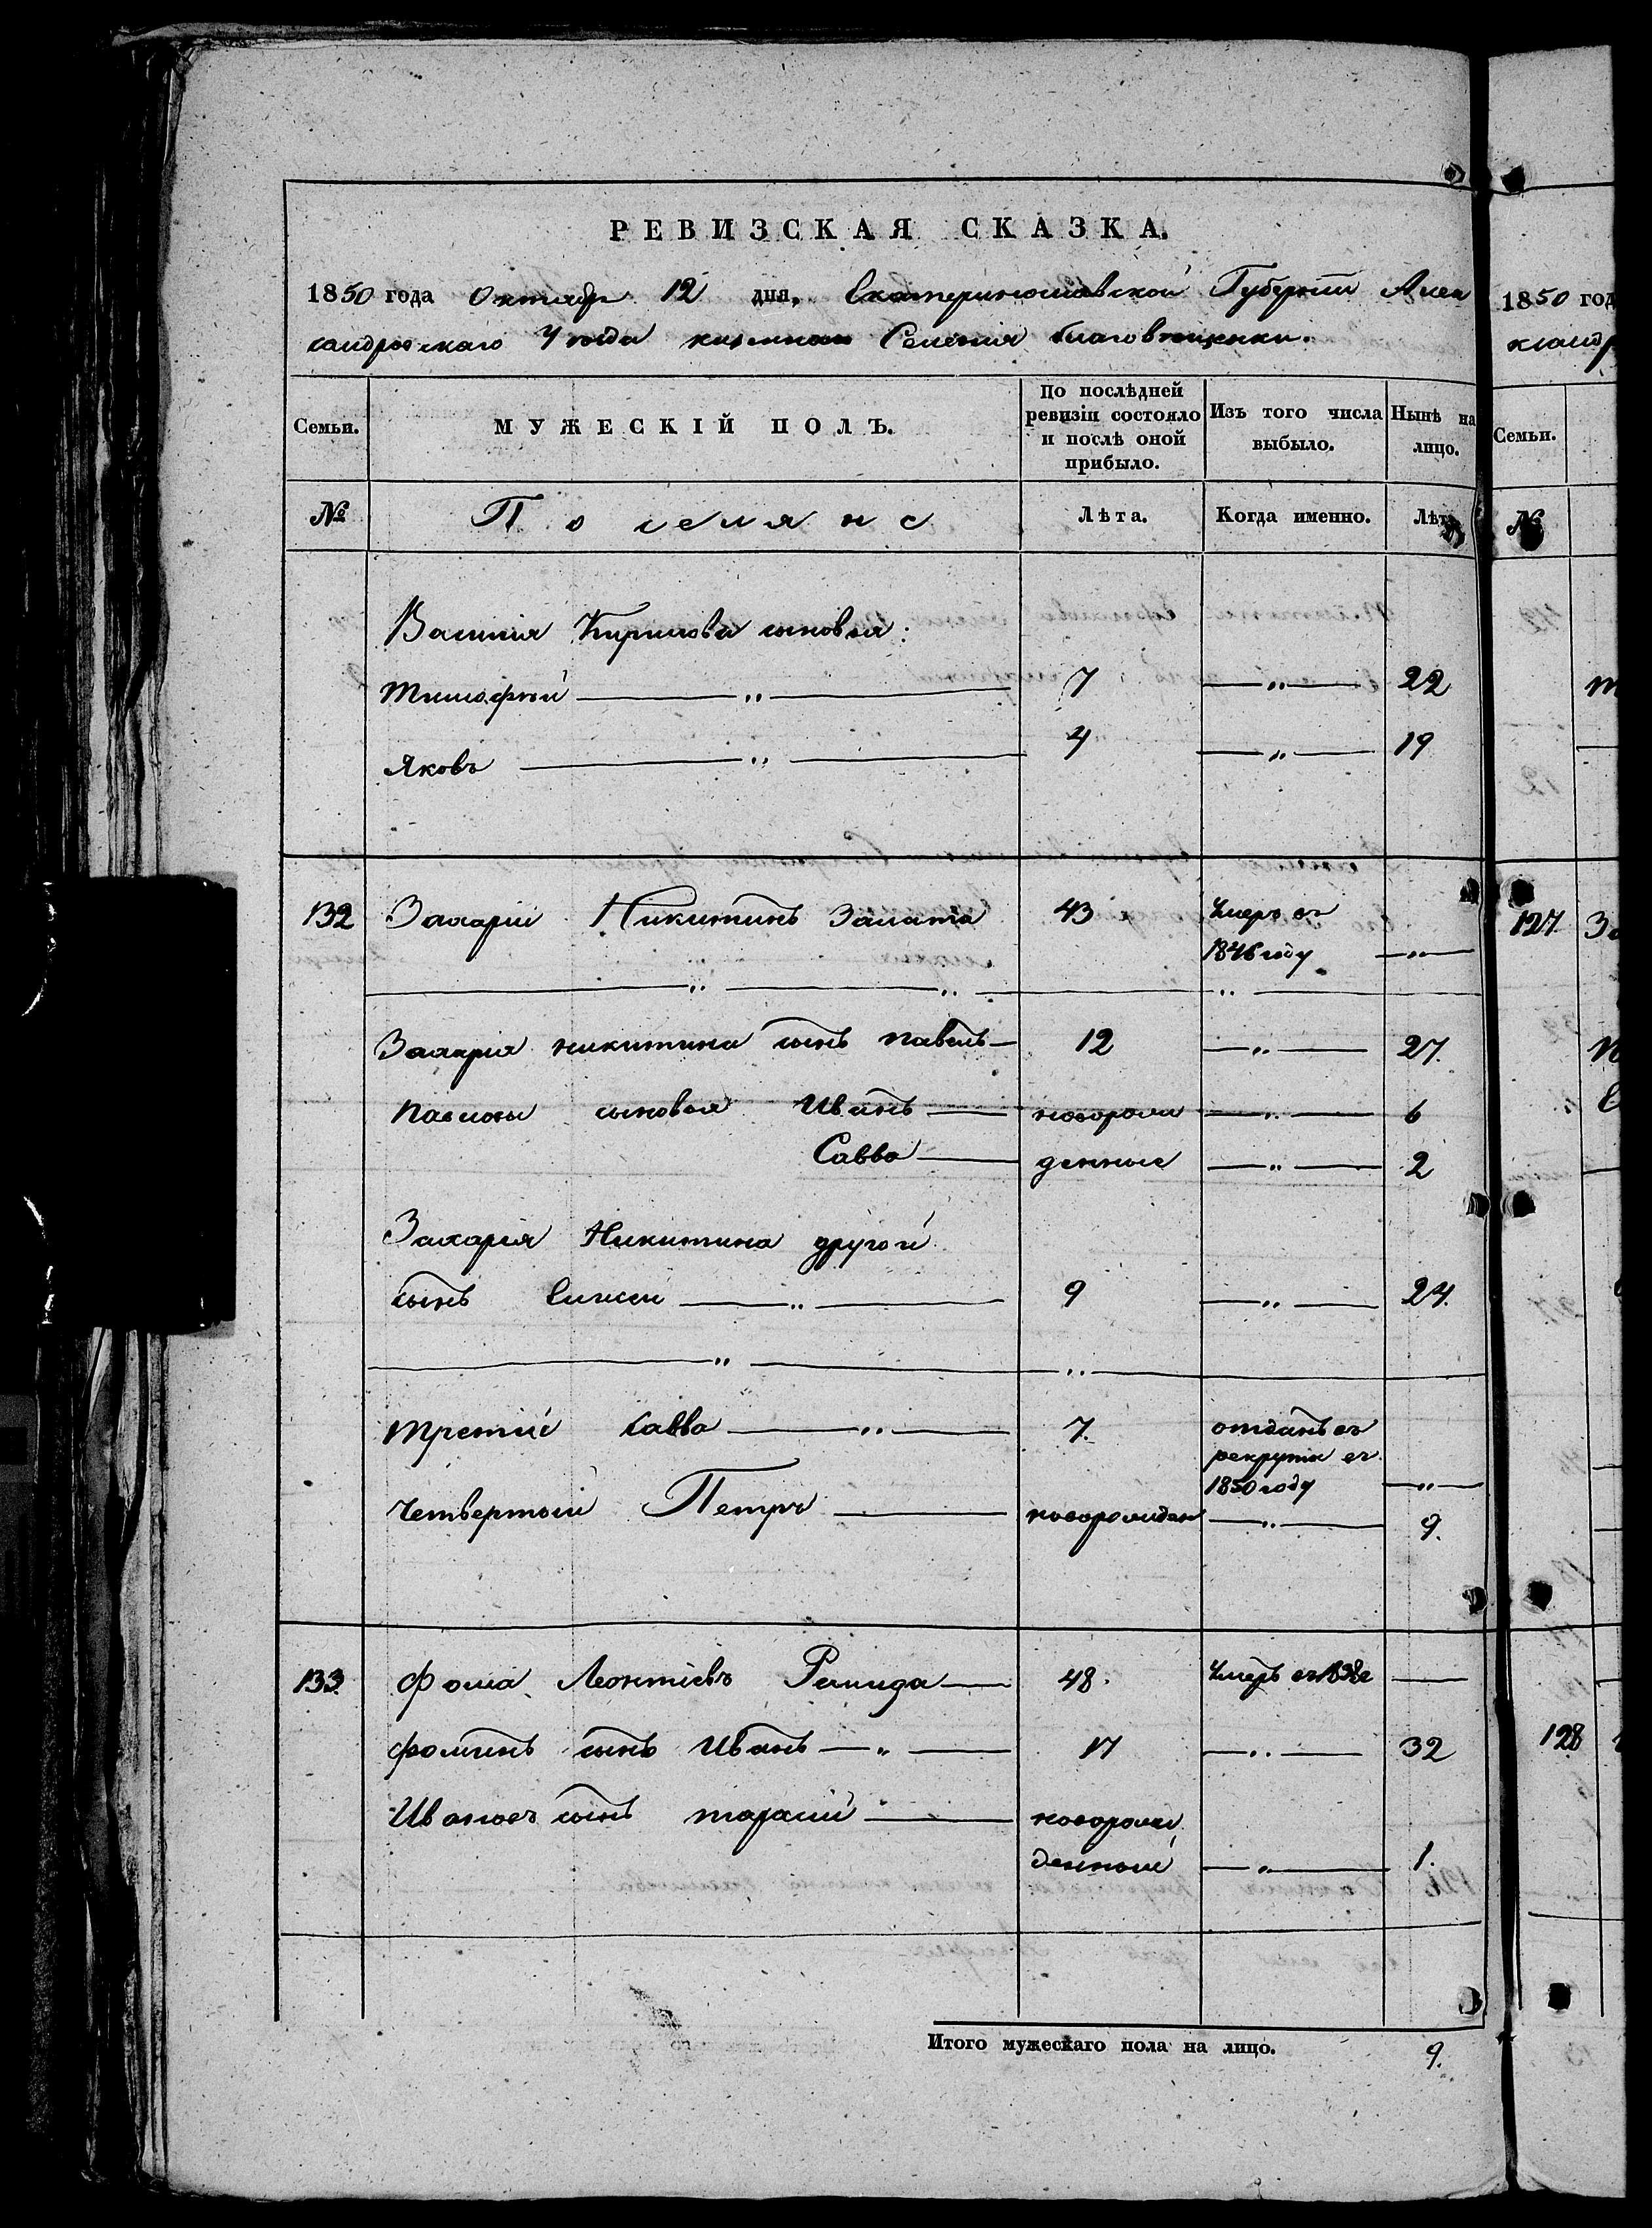 РЕВИЗСКАЯ СКАЗКА.
1850 года Октября 12 дня, Екатеринославской Губернии Алек
сандровскаго Уезда Селения Благовещенки.
Семьи. МУЖЕСКІЙ ПОЛЪ. По послѣдней ревизіи состояло и послѣ оной прибыло. Изъ того числа выбыло. Нынѣ на лицо.
№ Поселяне Лѣта. Когда именно. Лѣта
Василия Кирилова сыновья:
Тимофѣй —„— 7 —„— 22
Яковъ —„— 4 —„— 19
132 Захарий Никитинъ Залата 43 Умеръ въ
1846 году —„—
Захария Никитина сынъ Павелъ — 12 —„— 27.
Павловы сыновья Иванъ — новорож —„— 6
Савва — денные —„— 2
Захария Никитина другой
сынъ —„— 9 —„— 24.
третий Савва —„— 7. отданъ въ
рекруты въ
1850 году —„—
четвертый Петръ — новорожден —„— 9.
133. Фома Леонтіевъ — 48. Умеръ въ —
Фоминъ сынъ Иванъ —„— 17 —„— 32
Ивановъ сынъ Тарасий — новорож
денный —„— 1.
Итого мужескаго пола на лицо. 9.
1850 год
Семьи.
№
127
128